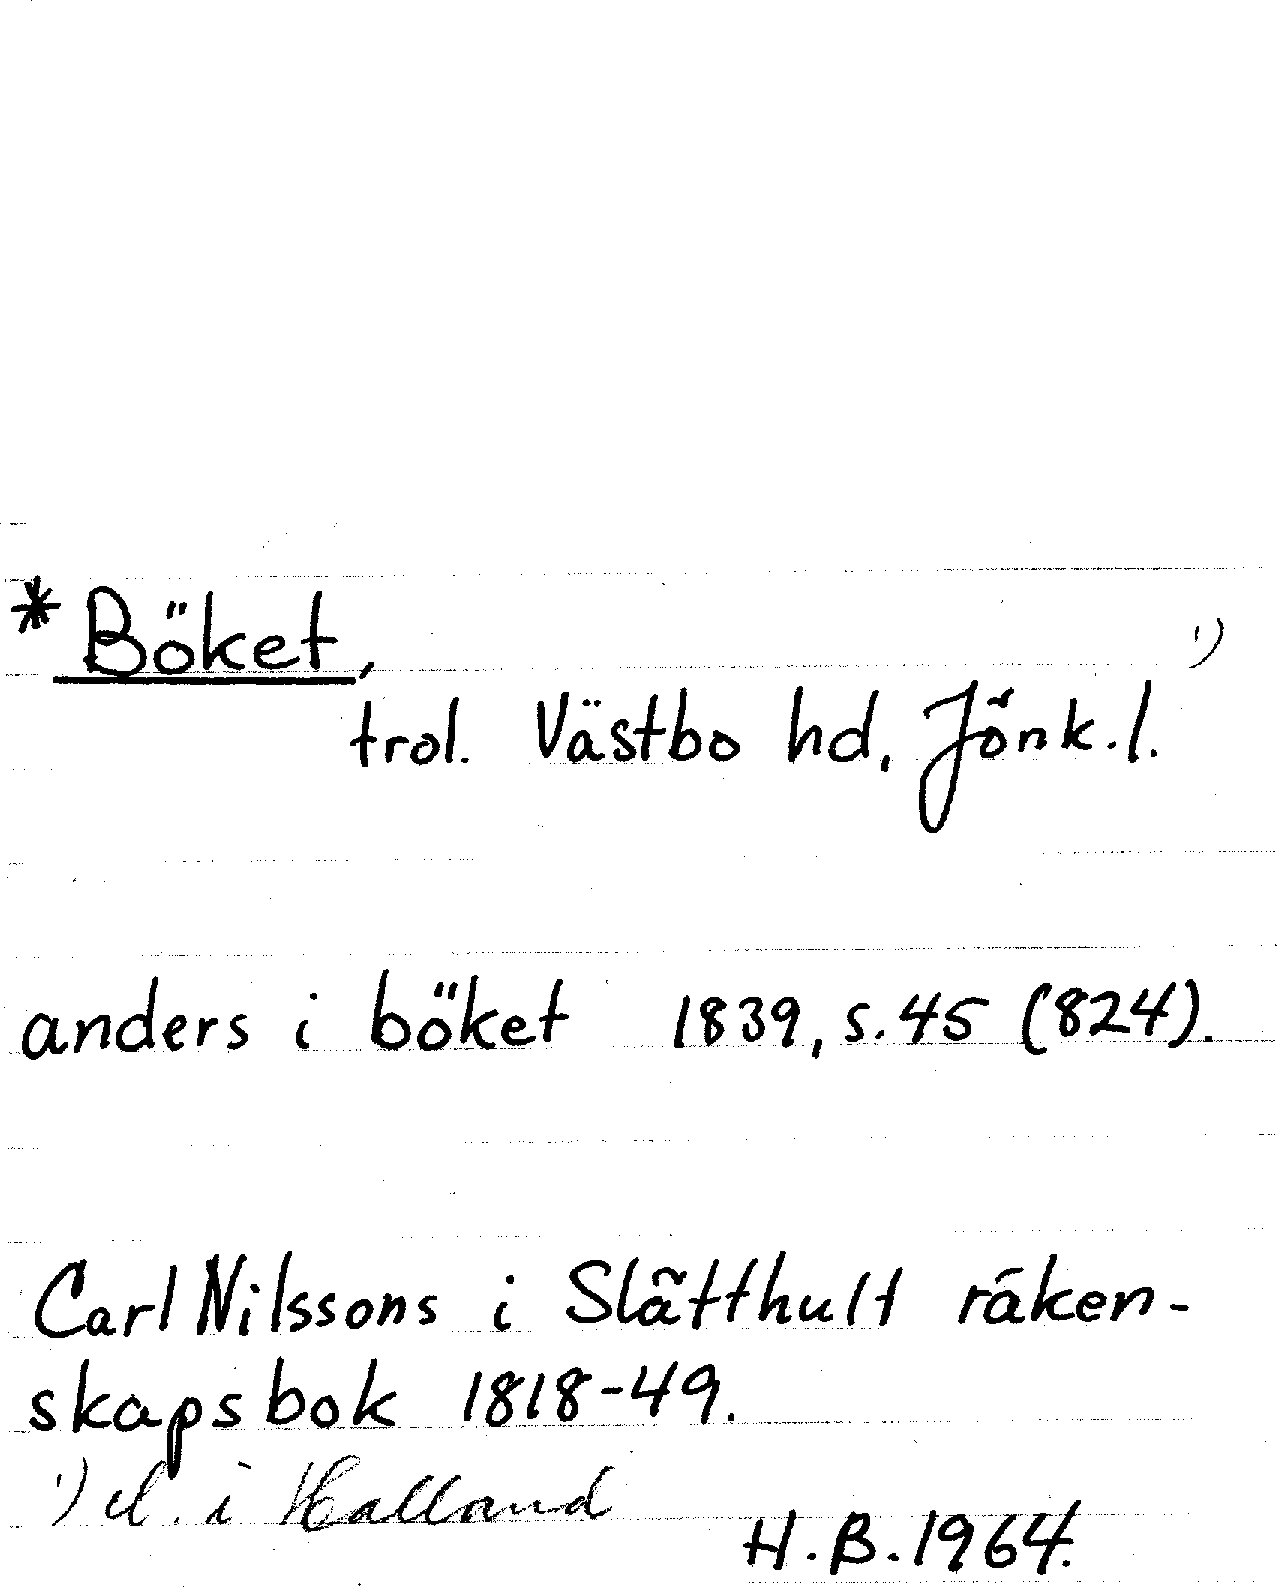 * Böket,
trol. Västbo hd, Jönk. l. ¹)
anders i böket 1839, s. 45 (824).
Carl Nilssons i Slätthult räken-
skapsbok 1818-49.
¹) el. i Halland
H. B. 1964.